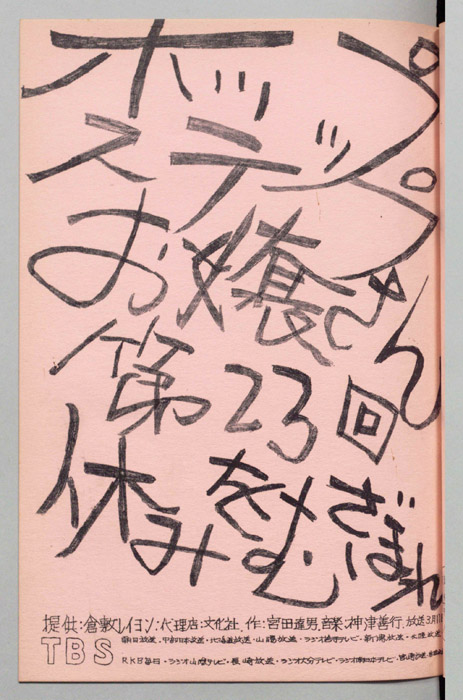 ホップ
ステップ
お嬢さん
第23回
休みをむさぼれ
提供:倉敷レイヨン・代理店:文化社. 作:宮田達男. 音楽:神津善行. 放送3月
朝日放送・中部日本放送・北海道放送・山陽放送・ラジオ岩手テレビ・新潟放送・
TBS
RKB毎日・ラジオ山陰テレビ・長崎放送・ラジオ大分テレビ・ラジオ南日本テレビ・宮崎放送